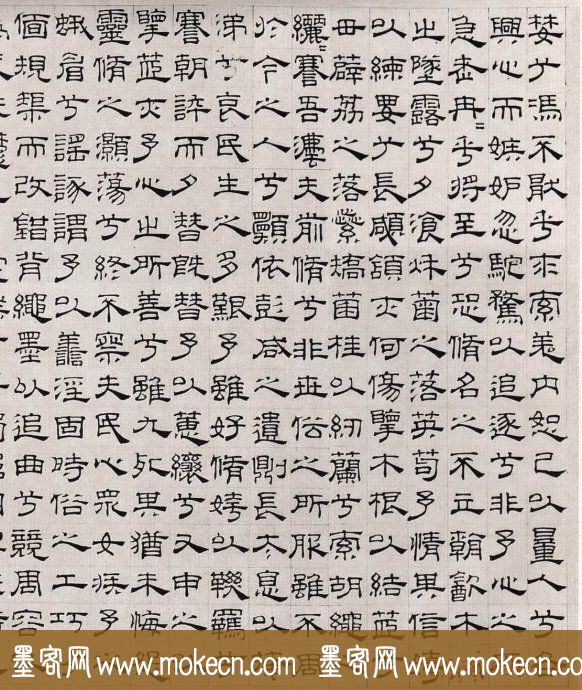 婪兮馮不猒乎求索羌内恕己以量人兮各
興心而嫉妒忽馳騖以追逐兮非予心之
急老冉=乎將至兮恐脩名之不立朝飲木
之墜露兮夕湌秌菊之落英苟予情其信
以練要兮長顑頷亦何傷擥木根以結茝
毌薜荔之落蘂矯菌桂以紉蘭兮索胡繩
纚=謇吾灋夫前脩兮非世俗之所服雖不周
於今之人兮顠依彭咸之遺則長太息以
涕兮哀民生之多艱予雖好脩姱以鞿羈
謇朝誶而夕替既替予以蕙纕兮又申之
擥茝亦予心之所善兮雖九死其猶未悔
靈脩之灝蕩兮終不察夫民心眾女疾予
蛾眉兮謠諑謂予以譱淫固時俗之工巧
偭規榘而改錯背繩墨以追曲兮競周容
墨客网 www.mokecn.com 墨客网 www.mokecn.com